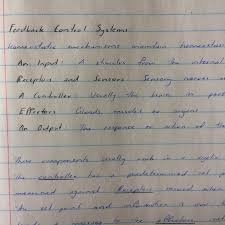 Feedback Control Systems
homeostatic mechanisms maintain homeostasis
An Input: A stimulus from the internal
Receptors and Sensors: Sensory nerves
A Controller: Usually the brain in
Effectors: Glands, muscles or organs
An Output: The response or action of the
These components usually work in a cycle
The controller has a predetermined set
measured against Receptors
The set point and information is
to the effectors